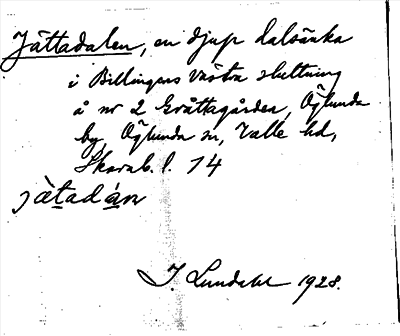 Jättadalen, en djup dalsänka
i Billingens västra sluttning
å nr 2 Gråttagården, Öglunda
by, Öglunda sn, Valle hd,
Skarab. l. 14
jä̀tadán
J. Lundahl 1928.